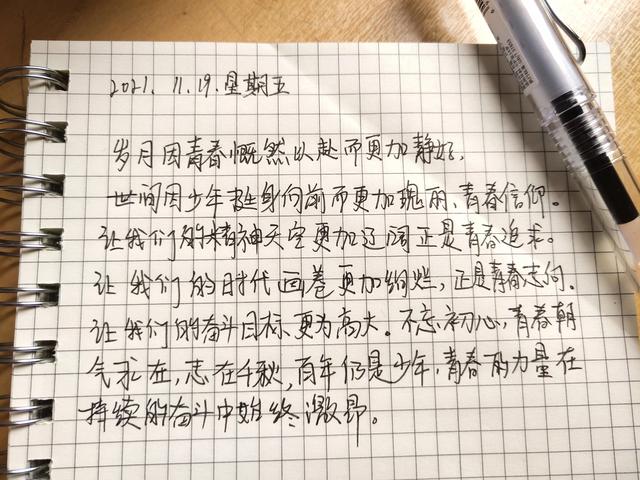 2021. 11. 19. 星期五
岁月因青春慨然以赴而更加静好,
世间因少年挺身向前而更加瑰丽,青春信仰。
让我们的精神天空更加辽阔正是青春追求。
让我们的时代画卷更加绚烂,正是青春志向.
让我们的奋斗目标更为高大。不忘初心,青春朝
气永在,志在千秋,百年仍是少年,青春的力量在
持续的奋斗中始终激昂。